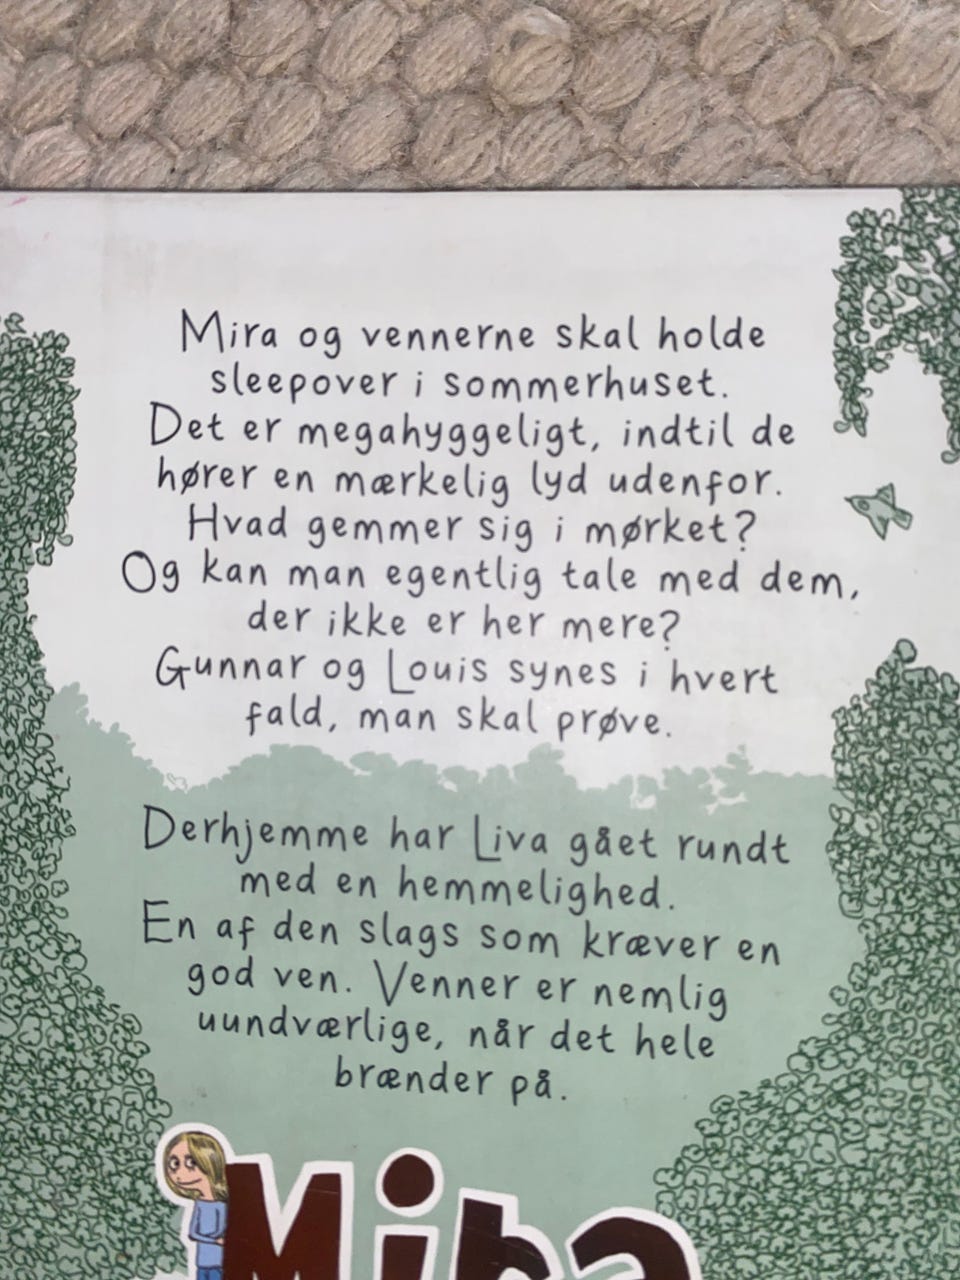 Mira og vennerne skal holde
sleepover i sommerhuset.
Det er megahyggeligt, indtil de
hører en mærkelig lyd udenfor.
Hvad gemmer sig i mørket?
Og kan man egentlig tale med dem,
der ikke er her mere?
Gunnar og Louis synes i hvert
fald, man skal prøve.
Derhjemme har Liva gået rundt
med en hemmelighed.
En af den slags som kræver en
god ven. Venner er nemlig
uundværlige, når det hele
brænder på.
Mira